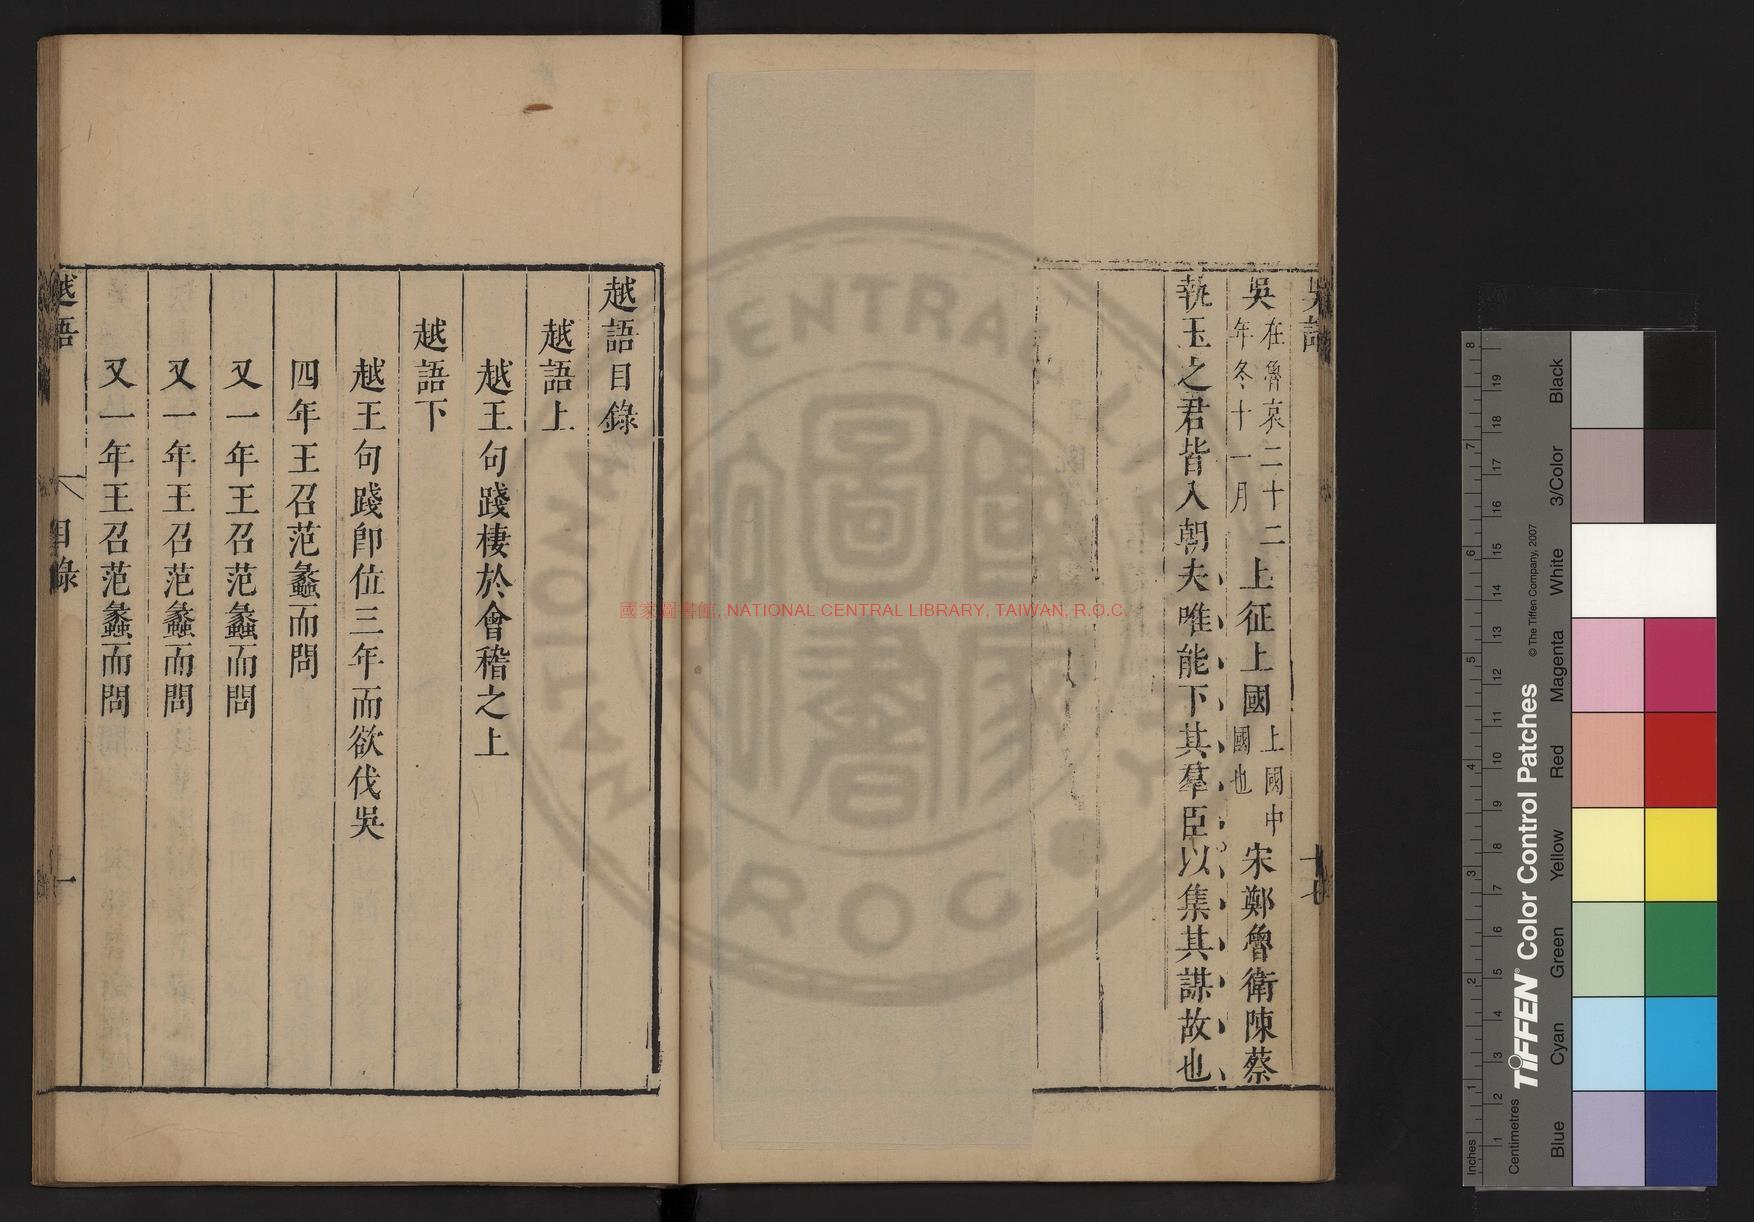 吳語
十七
吳在魯哀二十二年冬十一月上征上國上國中國也宋鄭魯衛陳蔡
執玉之君皆入朝夫唯能下其羣臣以集其謀故也
越語目錄
越語上
越王句踐棲於會稽之上
越語下
越王句踐即位三年而欲伐吳
四年王召范蠡而問
又一年王召范蠡而問
又一年王召范蠡而問
又一年王召范蠡而問
越語
目錄
一
國家圖書館, NATIONAL CENTRAL LIBRARY, TAIWAN, R.O.C.
NATIONAL CENTRAL LIBRARY
R.O.C.
國家圖書
Inches
Centimetres
TIFFEN® Color Control Patches
© The Tiffen Company, 2007
Blue
Cyan
Green
Yellow
Red
Magenta
White
3/Color
Black
1 2 3 4 5 6 7 8
1 2 3 4 5 6 7 8 9 10 11 12 13 14 15 16 17 18 19